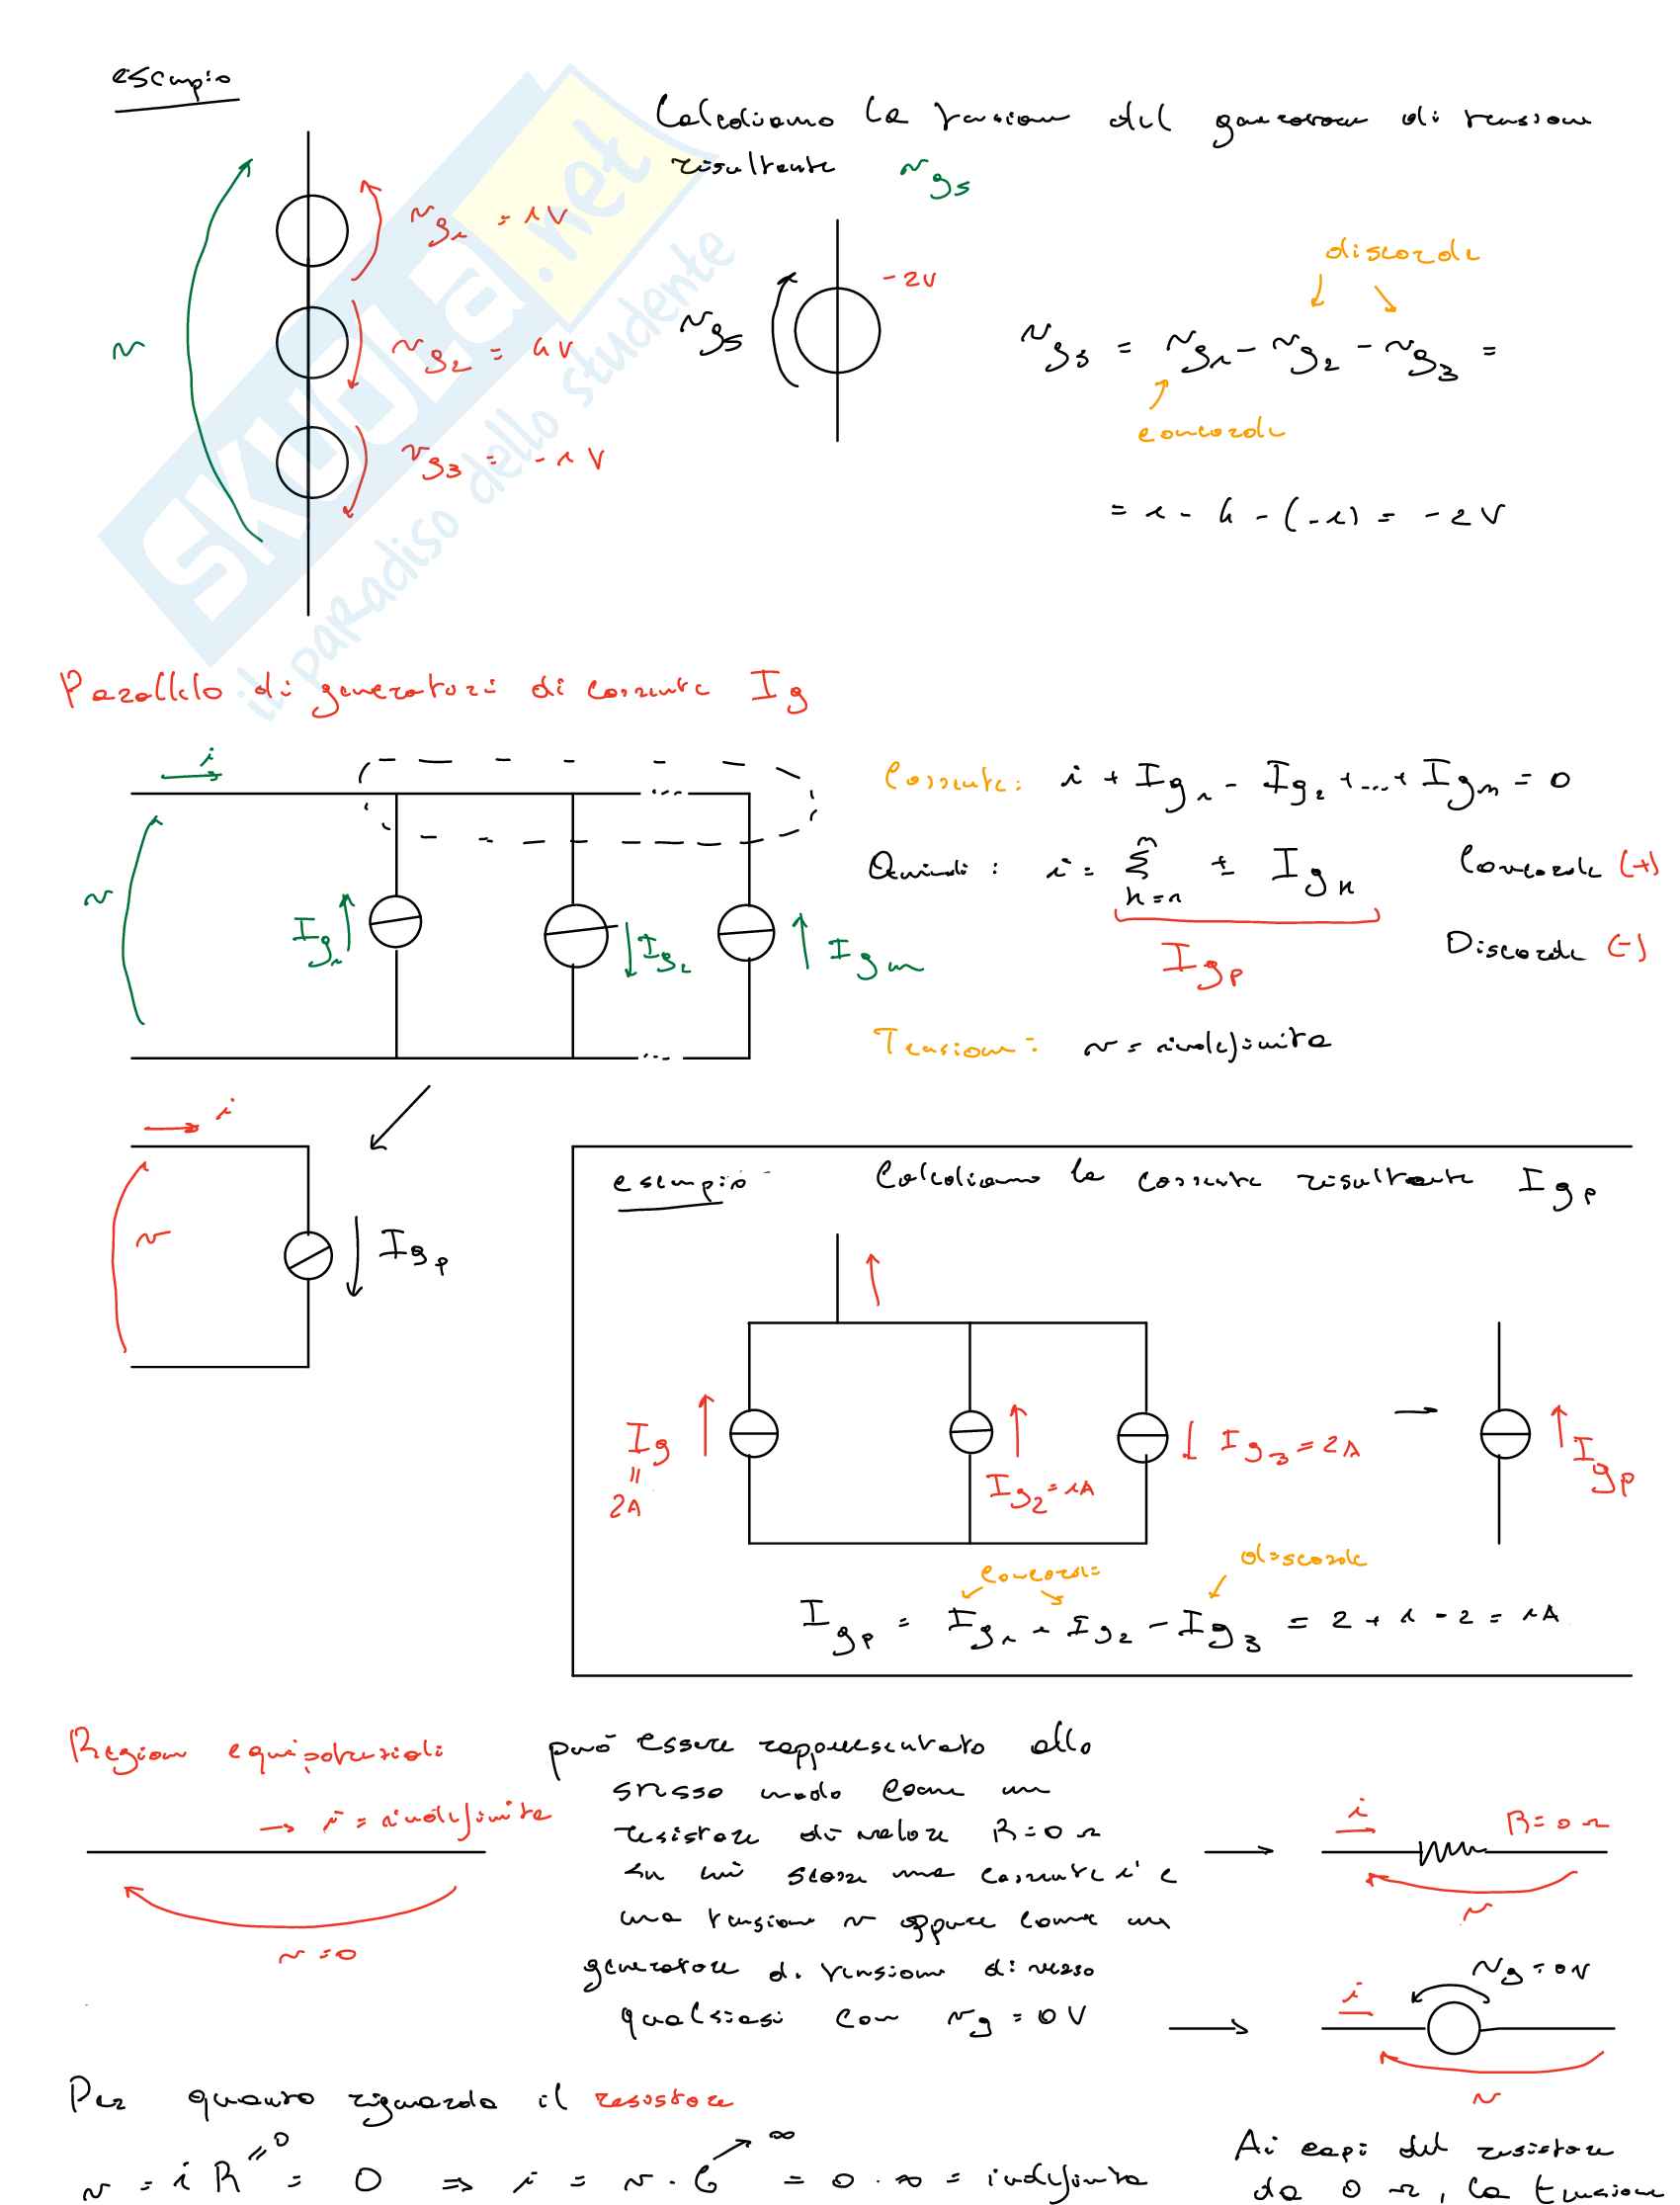 esempio
Calcoliamo la tensione del generatore di tensione
risultante v_gs
v_g1 = 1V
discorde
-2V
v_gs
v
v_g2 = 4V
v_gs = v_g1 - v_g2 - v_g3 =
concorde
v_g3 = -1V
= 1 - 4 - (-1) = -2V
SKUOLA.net
il paradiso dello studente
Parallelo di generatori di corrente Ig
i
Corrente: i + Ig1 - Ig2 + ... + Ign = 0
v
Quindi: i = Σ ± Igk
n
k=1
Concorde (+)
Ig1
Ig2
Ign
Igp
Discorde (-)
Tensione: v = indefinita
i
v
Igp
esempio Calcoliamo la corrente risultante Igp
Ig
=
2A
Ig2 = 1A
Ig3 = 2A
Igp
concordi
discorde
Igp = Ig1 + Ig2 - Ig3 = 2 + 1 - 2 = 1A
Regioni equipotenziali
→ i = indefinita
v = 0
può essere rappresentato allo
stesso modo come un
resistore di valore R = 0 Ω
su cui scorre una corrente i e
una tensione v oppure come un
generatore di tensione di verso
qualsiasi con v_g = 0V
i
R = 0 Ω
v
v_g = 0V
i
v
Per quanto riguarda il resistore
v = i R = 0 ⇒ i = v · G = 0 · ∞ = indefinita
= 0
∞
Ai capi del resistore
da 0 Ω, la tensione